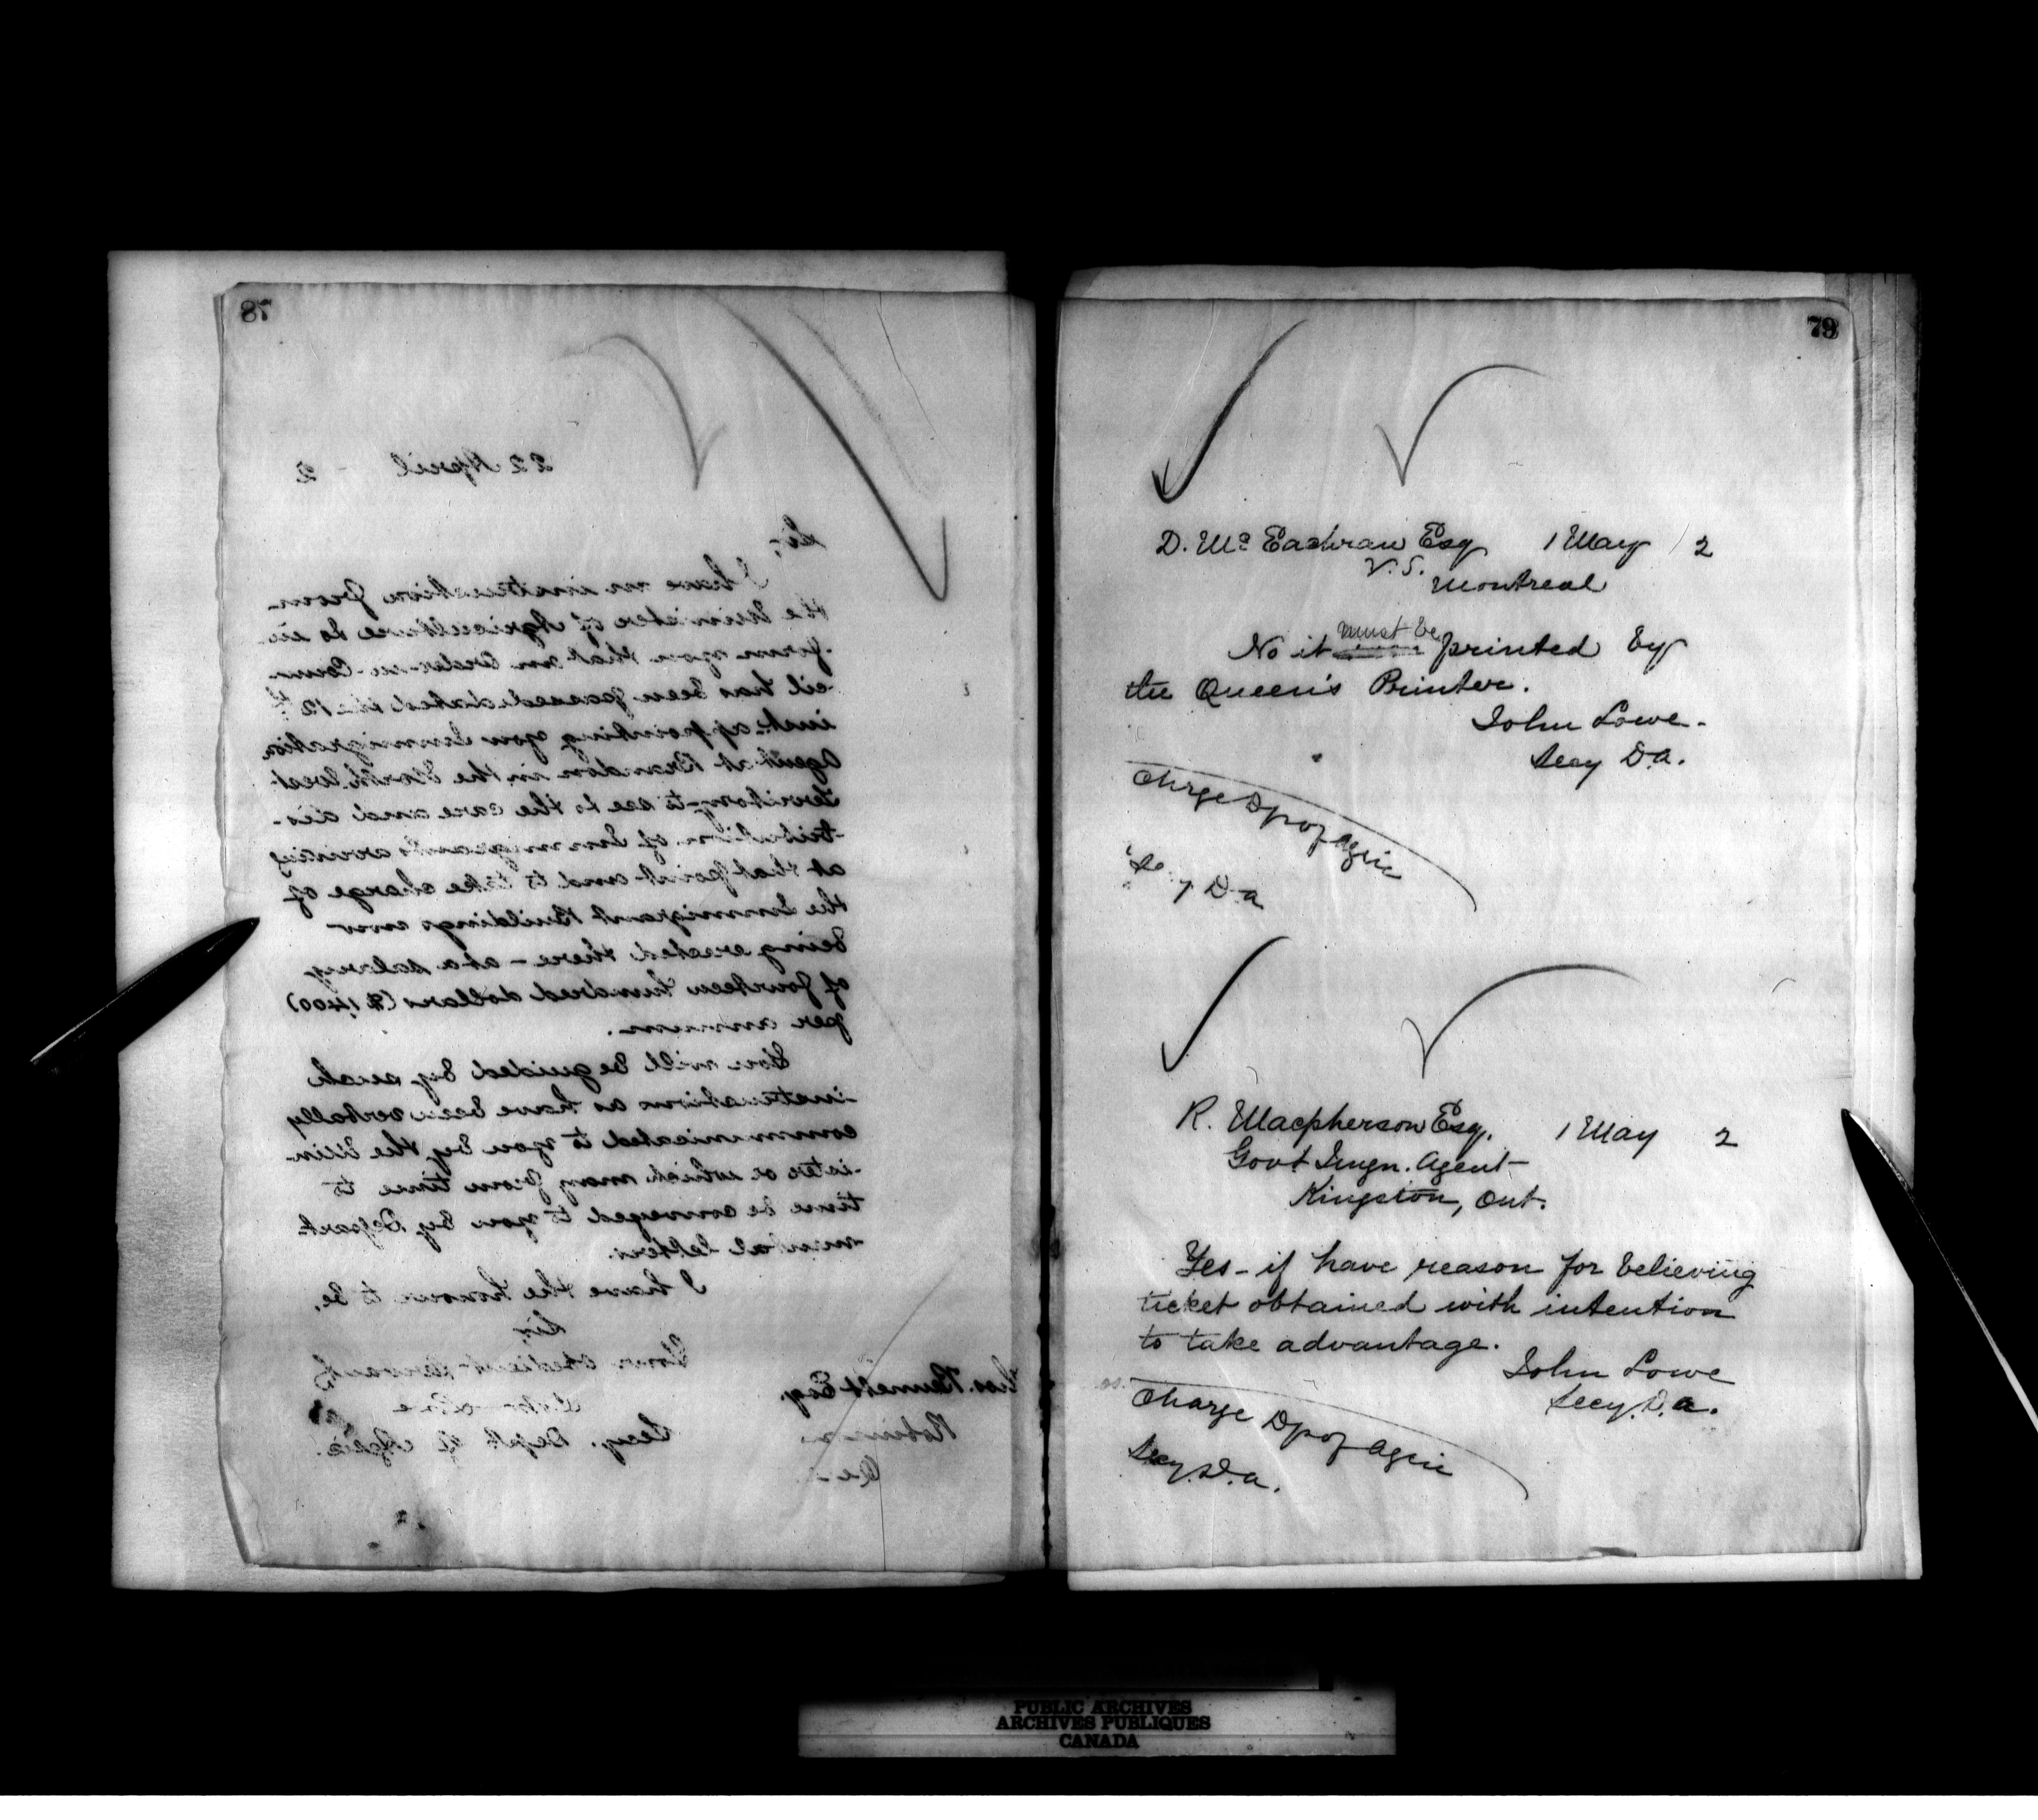 78
22 April 2
Sir,
I have an instruction from
the Minister of Agriculture to in-
form you that an Order-in-Coun-
cil has been passed dated the 12th
inst. appointing you Immigration
Agent at Brandon in the North West
Territory to see to the care and dis-
tribution of Immigrants arriving
at that point and to take charge of
the Immigrant Buildings now
being erected there - at a salary
of fourteen hundred dollars ($1,400)
per annum.
You will be guided by such
instructions as have been verbally
communicated to you by the Min-
ister or which may from time to
time be conveyed to you by Depart-
mental letters.
I have the honour to be,
Sir,
Your obedient Servant
John Lowe
Secy. Dept of Agric.
Thos. Bennett Esq.
79
D. Mc Eachran Esq 1 May / 2
V.S.
Montreal
must be
No it printed by
the Queen's Printer.
John Lowe.
Secy D.A.
Chrge Dp of Agric
Secy D.A
R. Macpherson Esq. 1 May 2
Govt Imgn. Agent
Kingston, Ont.
Yes - if have reason for believing
ticket obtained with intention
to take advantage.
John Lowe
Secy. D.A.
Charge Dp of Agric
Secy. D.A.
PUBLIC ARCHIVES
ARCHIVES PUBLIQUES
CANADA